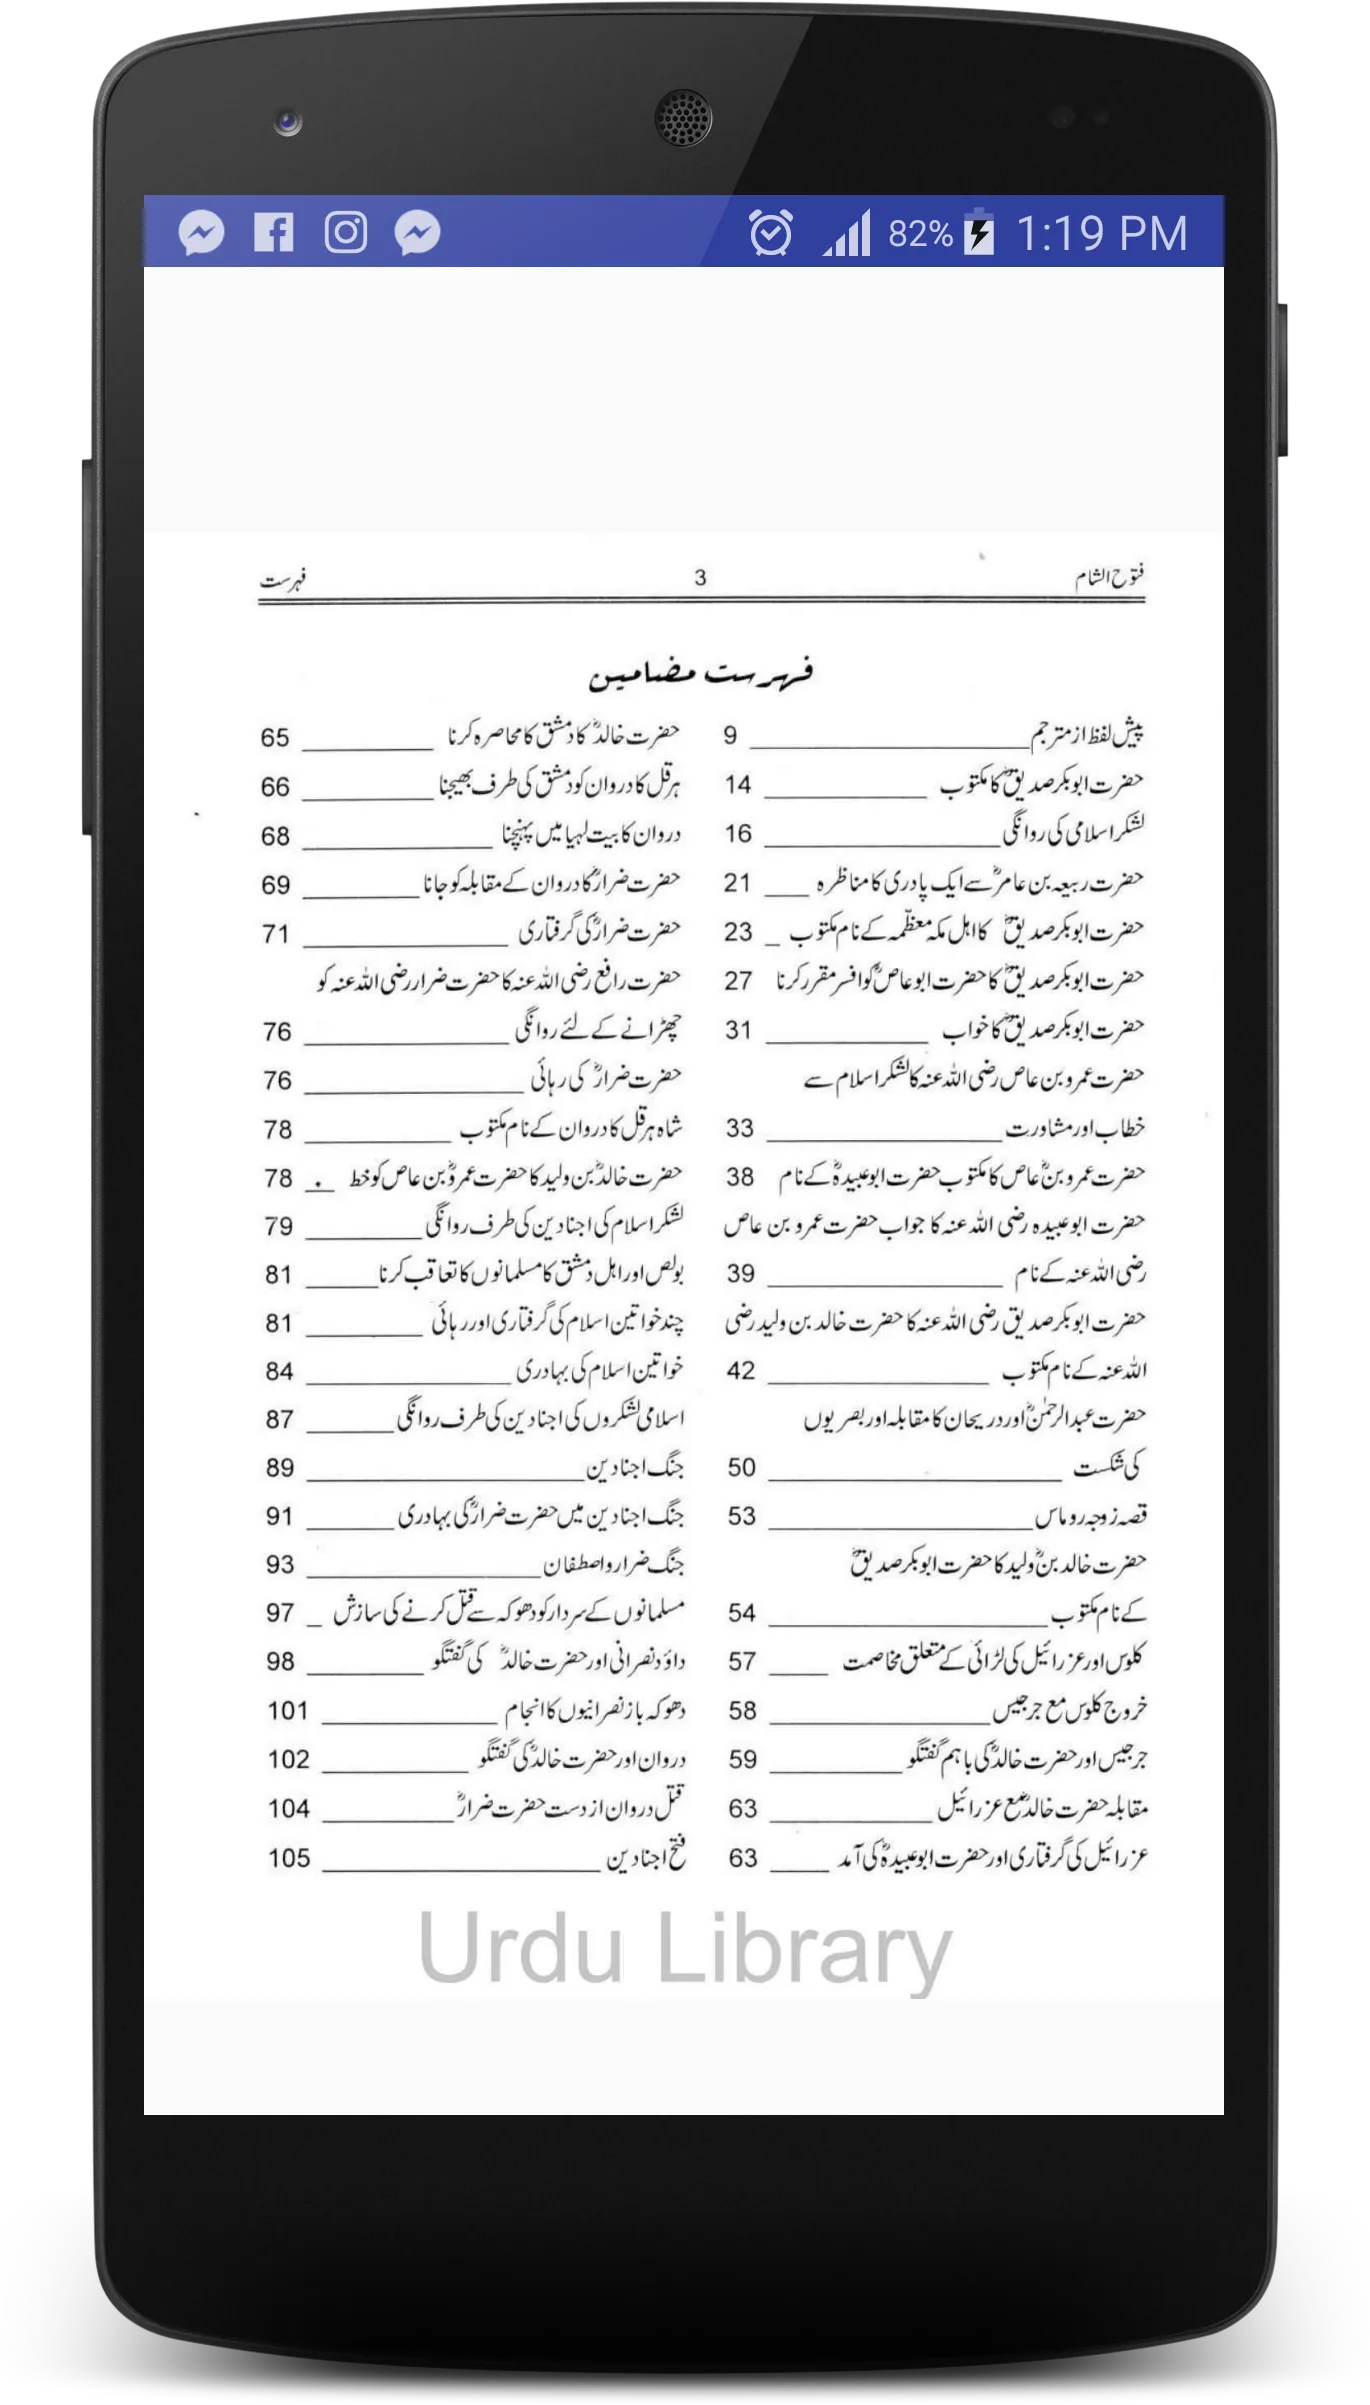 82% 1:19 PM
فتوح الشام 3 فہرست
فہرست مضامین
پیش لفظ از مترجم 9
حضرت ابوبکر صدیقؓ کا مکتوب 14
لشکر اسلامی کی روانگی 16
حضرت ربیعہ بن عامرؓ سے ایک پادری کا مناظرہ 21
حضرت ابوبکر صدیقؓ کا اہل مکہ معظّمہ کے نام مکتوب 23
حضرت ابوبکر صدیقؓ کا حضرت ابو عاصؓ کو افسر مقرر کرنا 27
حضرت ابوبکر صدیقؓ کا خواب 31
حضرت عمرو بن عاص رضی اللہ عنہ کا لشکر اسلام سے
خطاب اور مشاورت 33
حضرت عمرو بنؓ عاص کا مکتوب حضرت ابوعبیدہؓ کے نام 38
حضرت ابوعبیدہ رضی اللہ عنہ کا جواب حضرت عمرو بن عاص
رضی اللہ عنہ کے نام 39
حضرت ابوبکر صدیق رضی اللہ عنہ کا حضرت خالد بن ولید رضی
اللہ عنہ کے نام مکتوب 42
حضرت عبدالرحمٰنؓ اور دریحان کا مقابلہ اور بصریوں
کی شکست 50
قصہ زوجہ روماس 53
حضرت خالد بنؓ ولید کا حضرت ابوبکر صدیقؓ
کے نام مکتوب 54
کلوس اور عزرائیل کی لڑائی کے متعلق مخاصمت 57
خروج کلوس مع جرجیس 58
جرجیس اور حضرت خالدؓ کی باہم گفتگو 59
مقابلہ حضرت خالدؓ مع عزرائیل 63
عزرائیل کی گرفتاری اور حضرت ابوعبیدہؓ کی آمد 63
حضرت خالدؓ کا دمشق کا محاصرہ کرنا 65
ہرقل کا دروان کو دمشق کی طرف بھیجنا 66
دروان کا بیت لہیا میں پہنچنا 68
حضرت ضرارؓ کا دروان کے مقابلہ کو جانا 69
حضرت ضرارؓ کی گرفتاری 71
حضرت رافع رضی اللہ عنہ کا حضرت ضرار رضی اللہ عنہ کو
چھڑانے کے لئے روانگی 76
حضرت ضرارؓ کی رہائی 76
شاہ ہرقل کا دروان کے نام مکتوب 78
حضرت خالدؓ بن ولید کا حضرت عمروؓ بن عاص کو خط 78
لشکر اسلام کی اجنادین کی طرف روانگی 79
بولص اور اہل دمشق کا مسلمانوں کا تعاقب کرنا 81
چند خواتین اسلام کی گرفتاری اور رہائی 81
خواتین اسلام کی بہادری 84
اسلامی لشکروں کی اجنادین کی طرف روانگی 87
جنگ اجنادین 89
جنگ اجنادین میں حضرت ضرارؓ کی بہادری 91
جنگ ضرار و اصطفان 93
مسلمانوں کے سردار کو دھوکہ سے قتل کرنے کی سازش 97
داؤد نصرانی اور حضرت خالدؓ کی گفتگو 98
دھوکہ باز نصرانیوں کا انجام 101
دروان اور حضرت خالدؓ کی گفتگو 102
قتل دروان از دست حضرت ضرارؓ 104
فتح اجنادین 105
Urdu Library